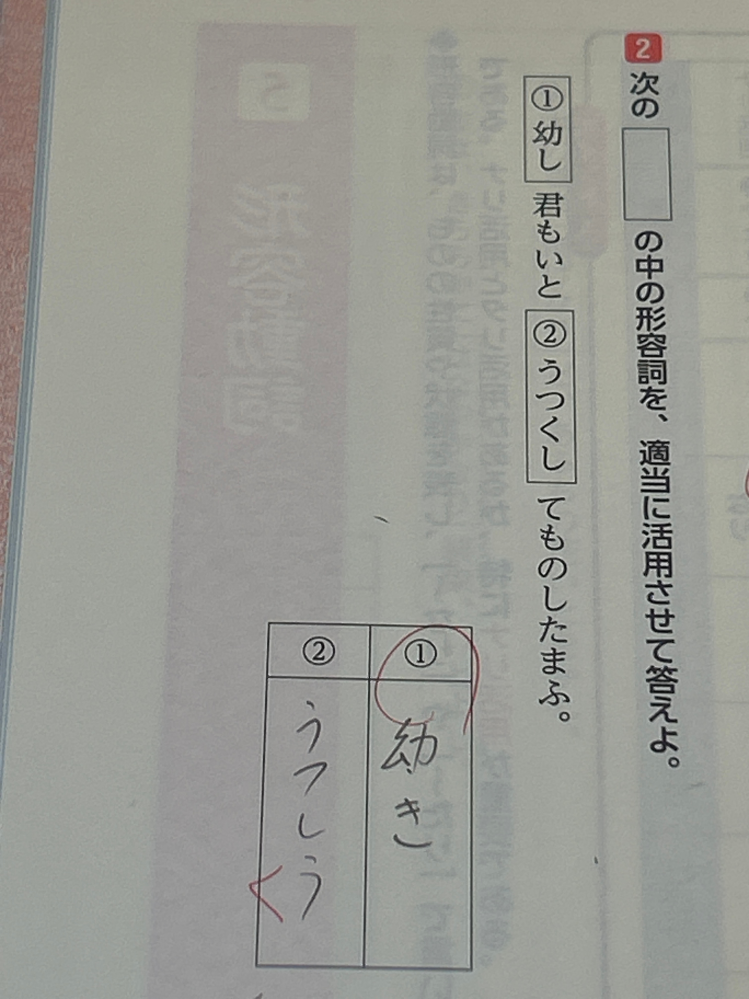 2 次の□の中の形容詞を、適当に活用させて答えよ。
①幼し 君もいと ②うつくし てものしたまふ。
①
幼き
②
うつしう
く